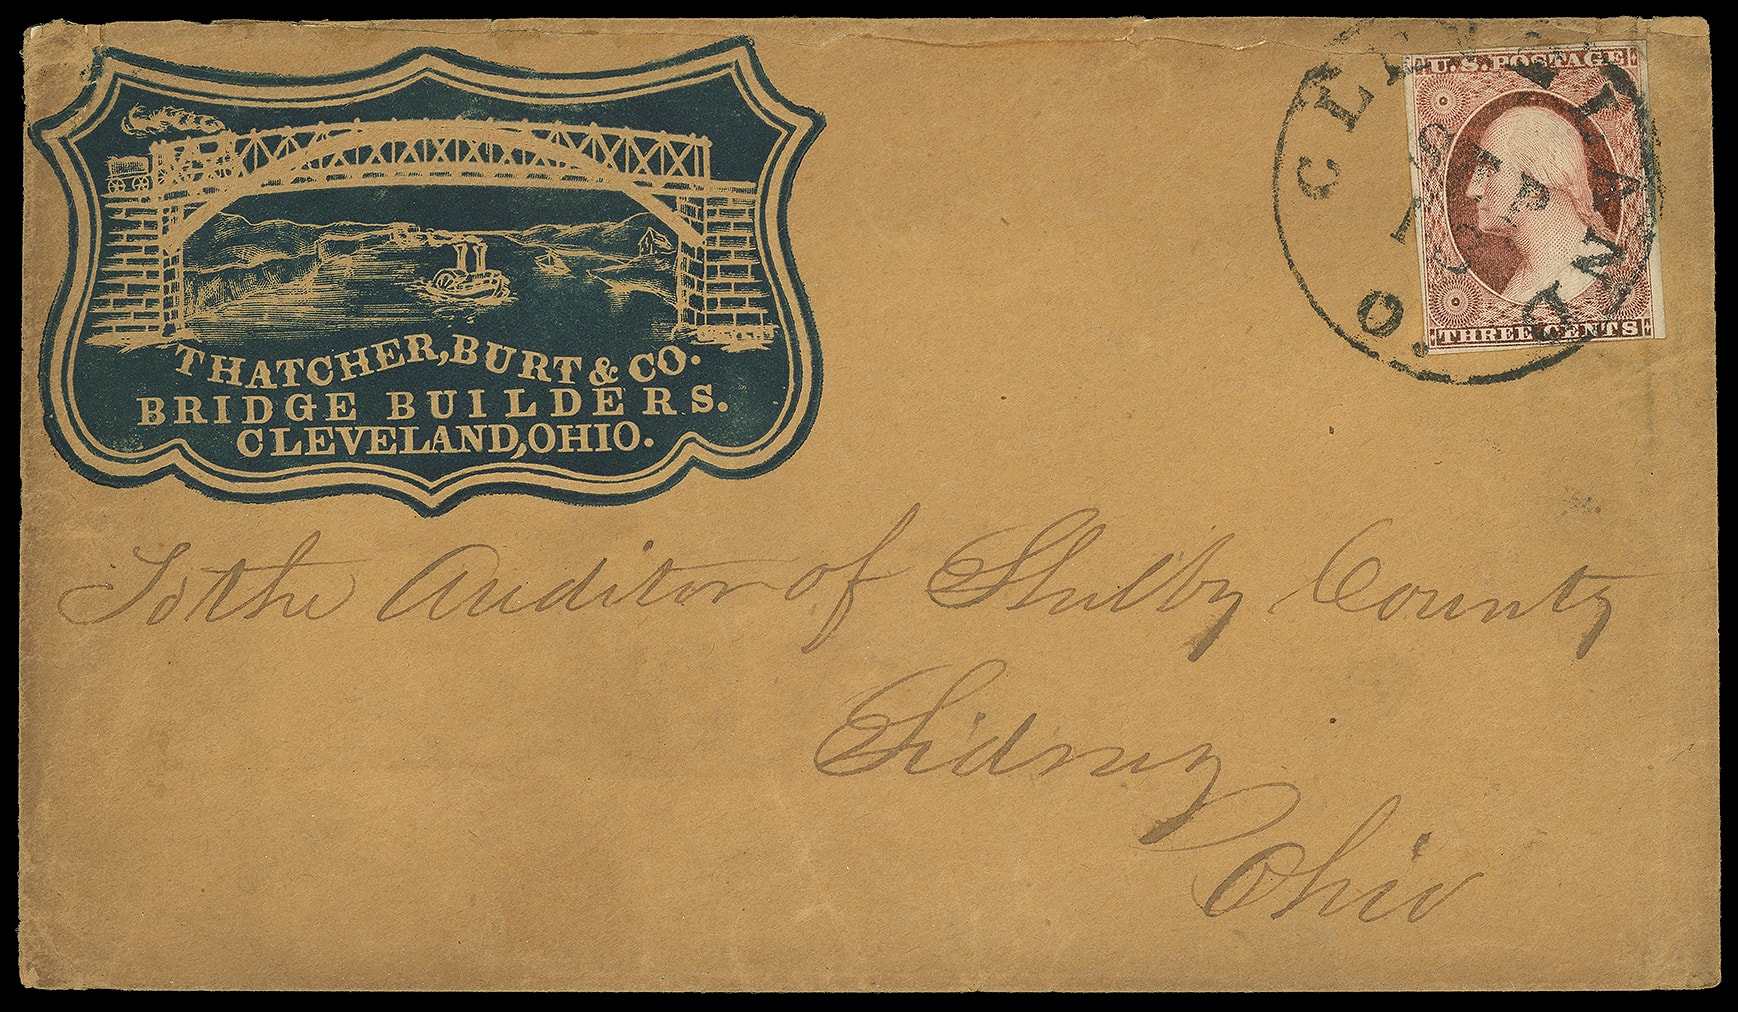 THATCHER, BURT & CO.
BRIDGE BUILDERS.
CLEVELAND, OHIO.
U.S. POSTAGE
THREE CENTS
SEP
O.
To the Auditor of Shelby County
Sidney
Ohio